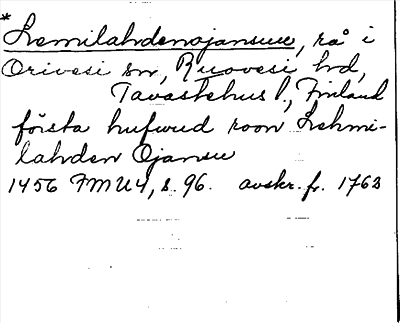 * Lehmilahdenojansuu, rå i
Orivesi sn, Ruovesi hd,
Tavastehus l., Finland
första hufwud roon Lehmi-
lahden Ojansu
1456 FMU4, s. 96. avskr. fr. 1763